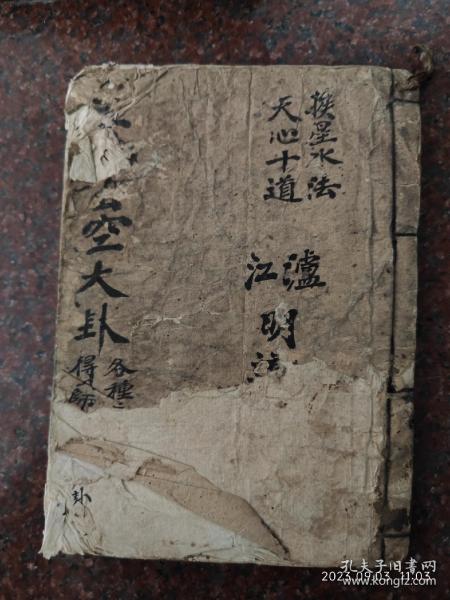 挨星水法
天心十道
瀘
江
明
空大卦
各種
得師
卦
孔夫子旧书网
2023.09.03 11:03